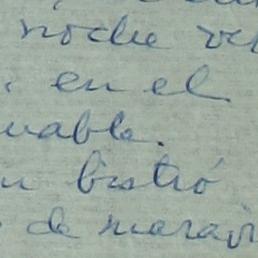 noche
. en el
uable.
un bistró
de marav